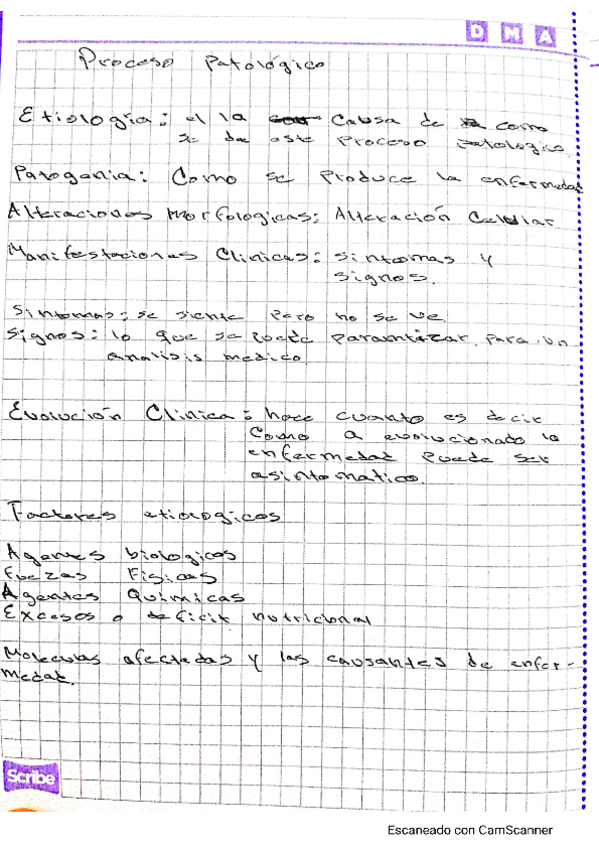 D M A
Proceso Patológico
Etiologia: el la causa de como
se da este Proceso Patologico.
Patogenia: Como se Produce la enfermedad
Alteraciones Morfologicas: Alteración Celular
Manifestaciones Clinicas: sintomas y
signos.
Sintomas: se siente Pero no se ve
Signos: lo que se puede Paramtizar. Para un
analisis medico.
Evolución Clinica: hace cuanto es decir
Como a evolucionado la
enfermedad Puede ser
asintomatico.
Factores etiologicos
Agentes biologicos
Fuerzas Fisicas
Agentes Quimicas
Excesos o deficit nutricional
Moleculas afectadas y las causantes de enfer-
medad.
Scribe
Escaneado con CamScanner